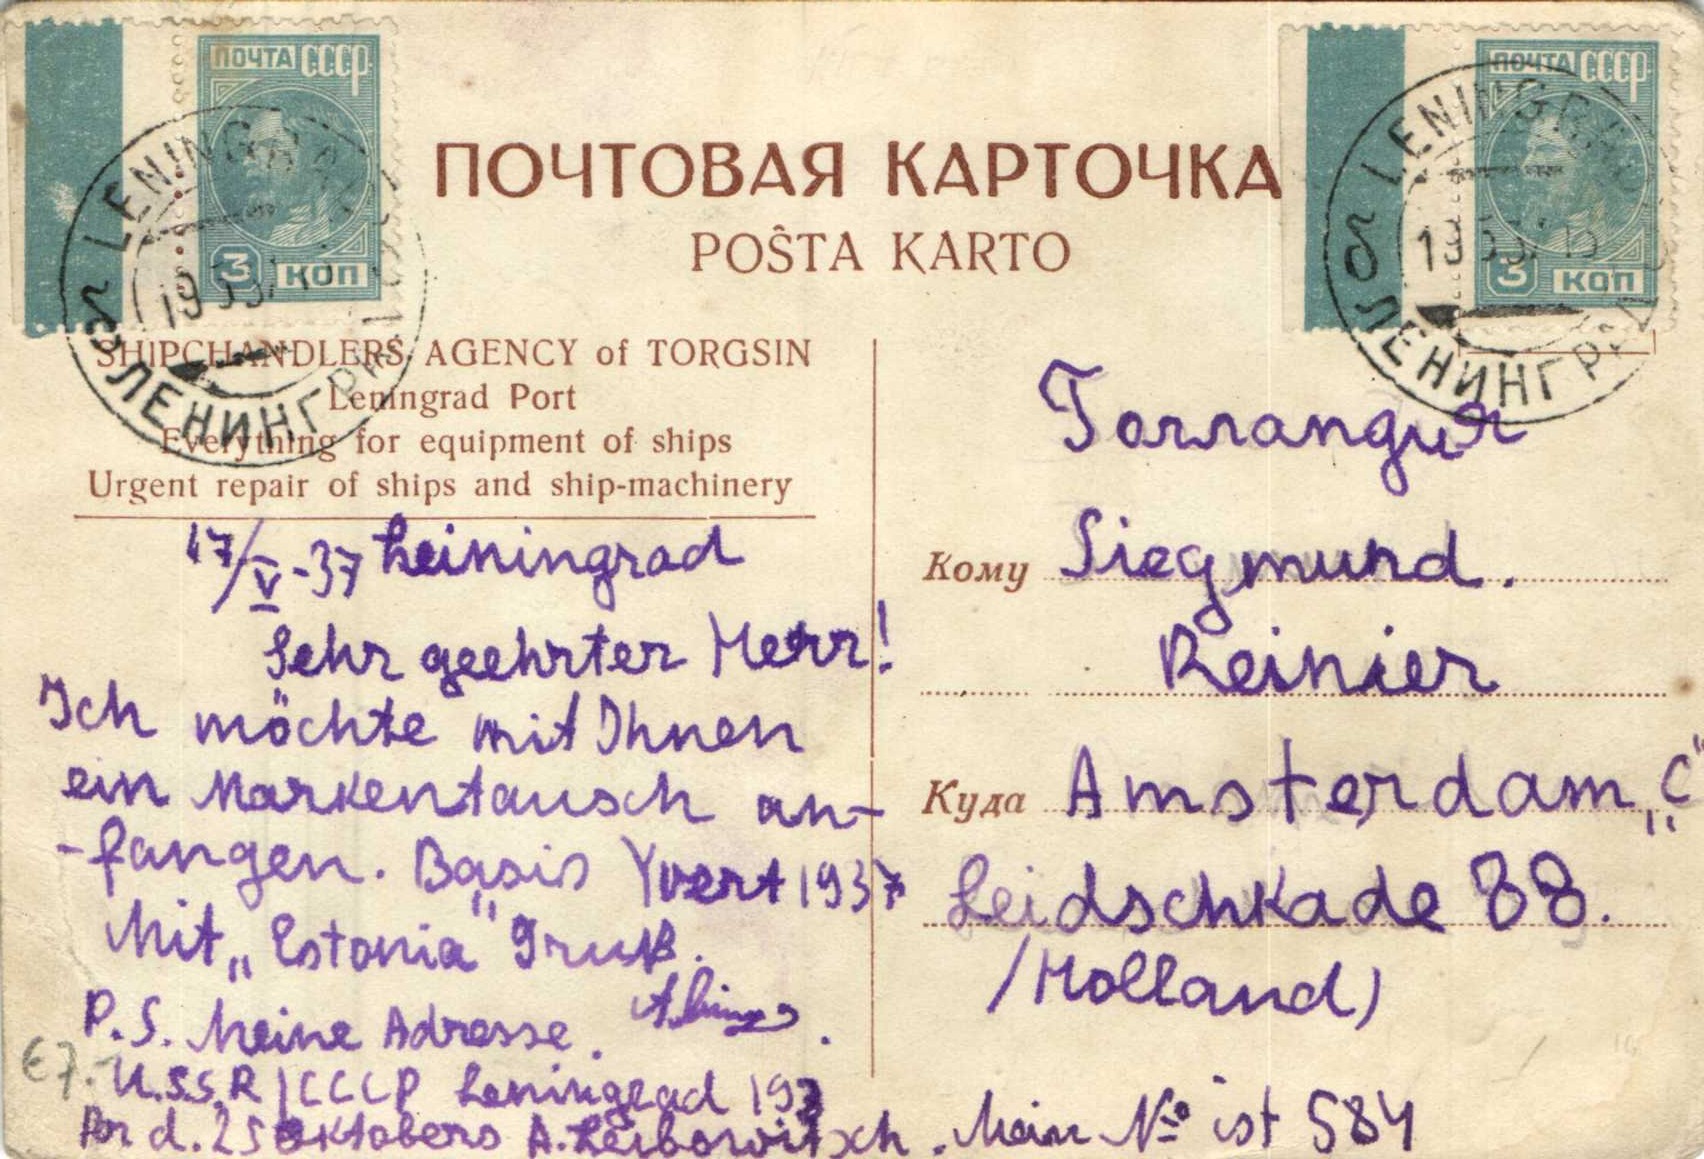 ПОЧТА СССР
3 КОП
ПОЧТА СССР
3 КОП
LENINGRAD
ЛЕНИНГРАД
LENINGRAD
ЛЕНИНГРАД
ПОЧТОВАЯ КАРТОЧКА
POŜTA KARTO
SHIPCHANDLERS AGENCY of TORGSIN
Leningrad Port
Everything for equipment of ships
Urgent repair of ships and ship-machinery
17/V-37 Leiningrad
Sehr geehrter Herr!
Ich möchte mit Ihnen
ein Markentausch an-
-fangen. Basis Yvert 1937
Mit „Estonia" Gruß.
P.S. Meine Adresse.
U.S.S.R/CCCP Leningrad 193
Pr d. 25 Oktobers A. Leibowitsch. Mein № ist 584
€7.-
Кому Siegmund.
Reinier
Куда Amsterdam „C"
Leidschkade 88.
/Holland)